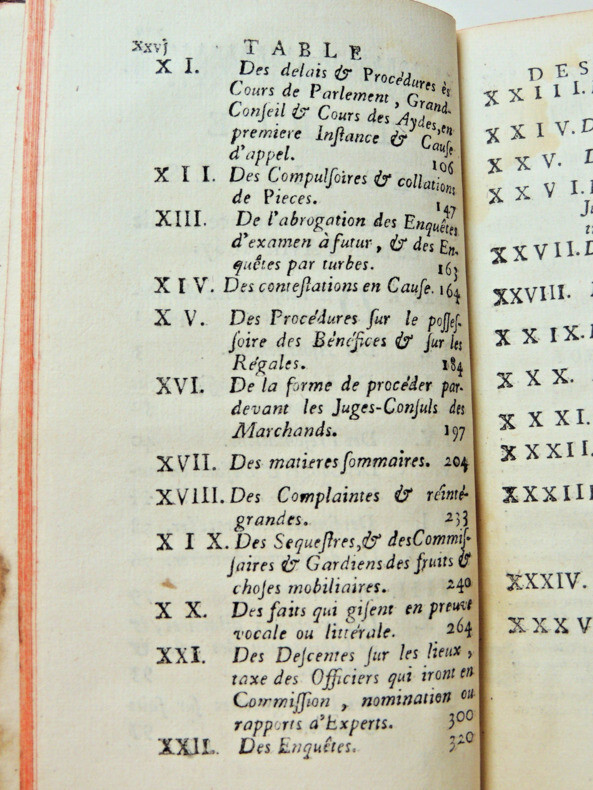 xxvj TABLE
XI. Des delais & Procédures ès
Cours de Parlement, Grand-
Conſeil & Cours des Aydes, en
premiere Inſtance & Cauſe
d'appel. 106
XII. Des Compulſoires & collations
de Pieces. 147
XIII. De l'abrogation des Enquêtes
d'examen à futur, & des En-
quêtes par turbes. 163
XIV. Des conteſtations en Cauſe. 164
XV. Des Procédures ſur le poſſeſ-
ſoire des Bénéfices & ſur les
Régales. 184
XVI. De la forme de procéder par-
devant les Juges-Conſuls des
Marchands. 197
XVII. Des matieres ſommaires. 204
XVIII. Des Complaintes & réinté-
grandes. 233
XIX. Des Sequeſtres, & des Commiſ-
ſaires & Gardiens des fruits &
choſes mobiliaires. 240
XX. Des faits qui giſent en preuve
vocale ou littérale. 264
XXI. Des Deſcentes ſur les lieux,
taxe des Officiers qui iront en
Commiſſion, nomination ou
rapports d'Experts. 300
XXII. Des Enquêtes. 320
DES
XXIII.
XXIV.
XXV.
XXVI.
XXVII.
XXVIII.
XXIX.
XXX.
XXXI.
XXXII.
XXXIII
XXXIV.
XXXV